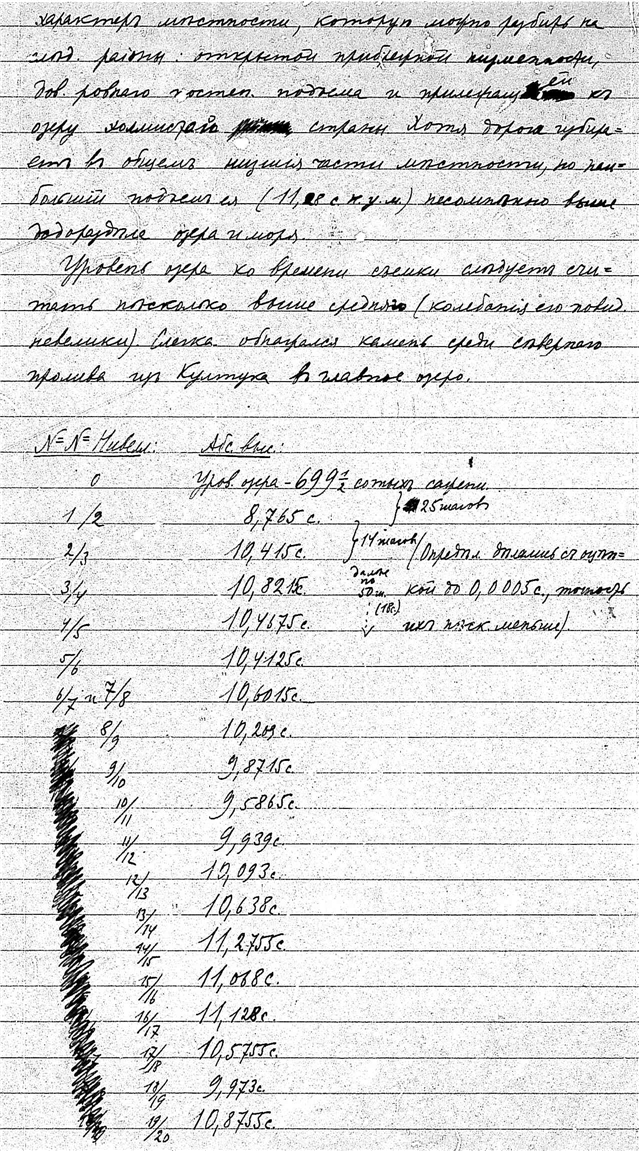 характеръ мѣстности, которую можно рубить на
слѣд. районы: открытой прибрежной низменности,
дов. ровнаго постеп. подъема и прилежащей къ
озеру холмистаго страны Хотя дорога избира=
етъ въ общемъ низшія части мѣстности, но наи=
большій подъемъ ея (11,28 с н.у.м.) несомнѣнно выше
водораздѣла озера и моря.
Уровень озера ко времени съемки слѣдуетъ счи=
тать нѣсколько выше средняго (колебанія его повид.
невелики). Слегка обнажался камень среди сѣвернаго
пролива изъ Култука въ главное озеро.
N=N= Нивел: Абс. выс.:
0 Уров. озера - 699 1/2 сотыхъ сажени.
1/2 8,765 с. } 25 шаговъ
2/3 10,415 с. } 14 шаговъ (Опредѣл. дѣлались съ оцѣн=
3/4 10,8215 с. далѣе по 50 ш. (18с.) кой до 0,0005с., точность
4/5 10,4675 с. ихъ нѣск. меньше)
5/6 10,4125 с.
6/7 и 7/8 10,6015 с.
8/9 10,209 с.
9/10 9,8715 с.
10/11 9,5865 с.
11/12 9,939 с.
12/13 10,093 с.
13/14 10,638 с.
14/15 11,2755 с.
15/16 11,068 с.
16/17 11,128 с.
17/18 10,5755 с.
18/19 9,973 с.
19/20 10,8755 с.